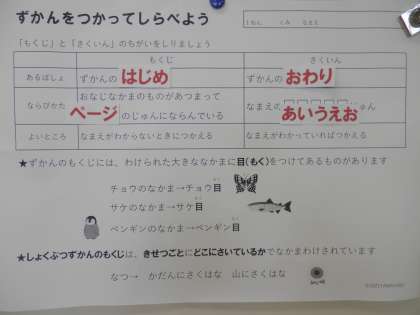 ずかんをつかってしらべよう
「もくじ」と「さくいん」のちがいをしりましょう
もくじ さくいん
あるばしょ ずかんの はじめ ずかんの おわり
ならびかた おなじなかまのものがあつまって
ページ のじゅんにならんでいる なまえの あいうえお じゅん
よいところ なまえがわからないときにつかえる なまえがわかっていればつかえる
★ずかんのもくじには、わけられた大きななかまに目(もく)をつけてあるものがあります
チョウのなかま→チョウ目
サケのなかま→サケ目
ペンギンのなかま→ペンギン目
★しょくぶつずかんのもくじは、きせつごとにどこにさいているかでなかまわけされています
なつ→ かだんにさくはな 山にさくはな